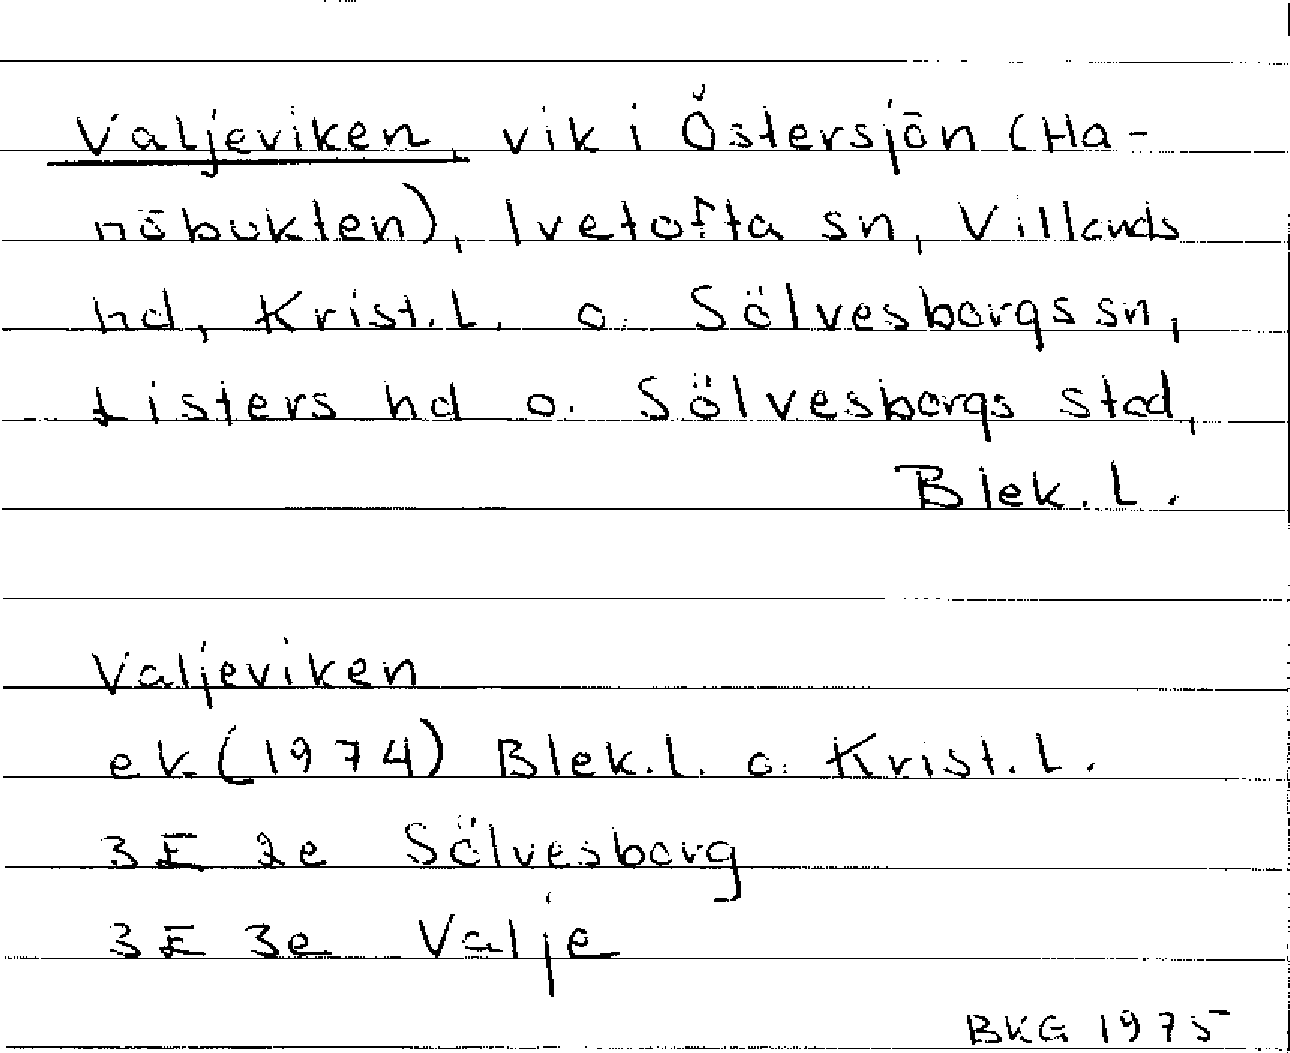 Valjeviken, vik i Östersjön (Ha-
nöbukten), Ivetofta sn, Villands
hd, Krist. l. o. Sölvesborgs sn,
Listers hd o. Sölvesborgs stad,
Blek. l.
Valjeviken
ek (1974) Blek. l. o. Krist. l.
3E 2e Sölvesborg
3E 3e Valje
BKG 1975